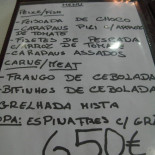 MENU
PEIXE/FISH
- FEIJOADA DE CHOCO
- CARAPAUS FRI C/ARROZ
DE TOMATE
- FILETES DE PESCADA
C/ARROZ DE TOMATE
- CARAPAUS ASSADOS
CARNE/MEAT
- FRANGO DE CEBOLADA
- BIFINHOS DE CEBOLADA
- GRELHADA MISTA
OPA: ESPINAFRES C/GRÃ
6,50€